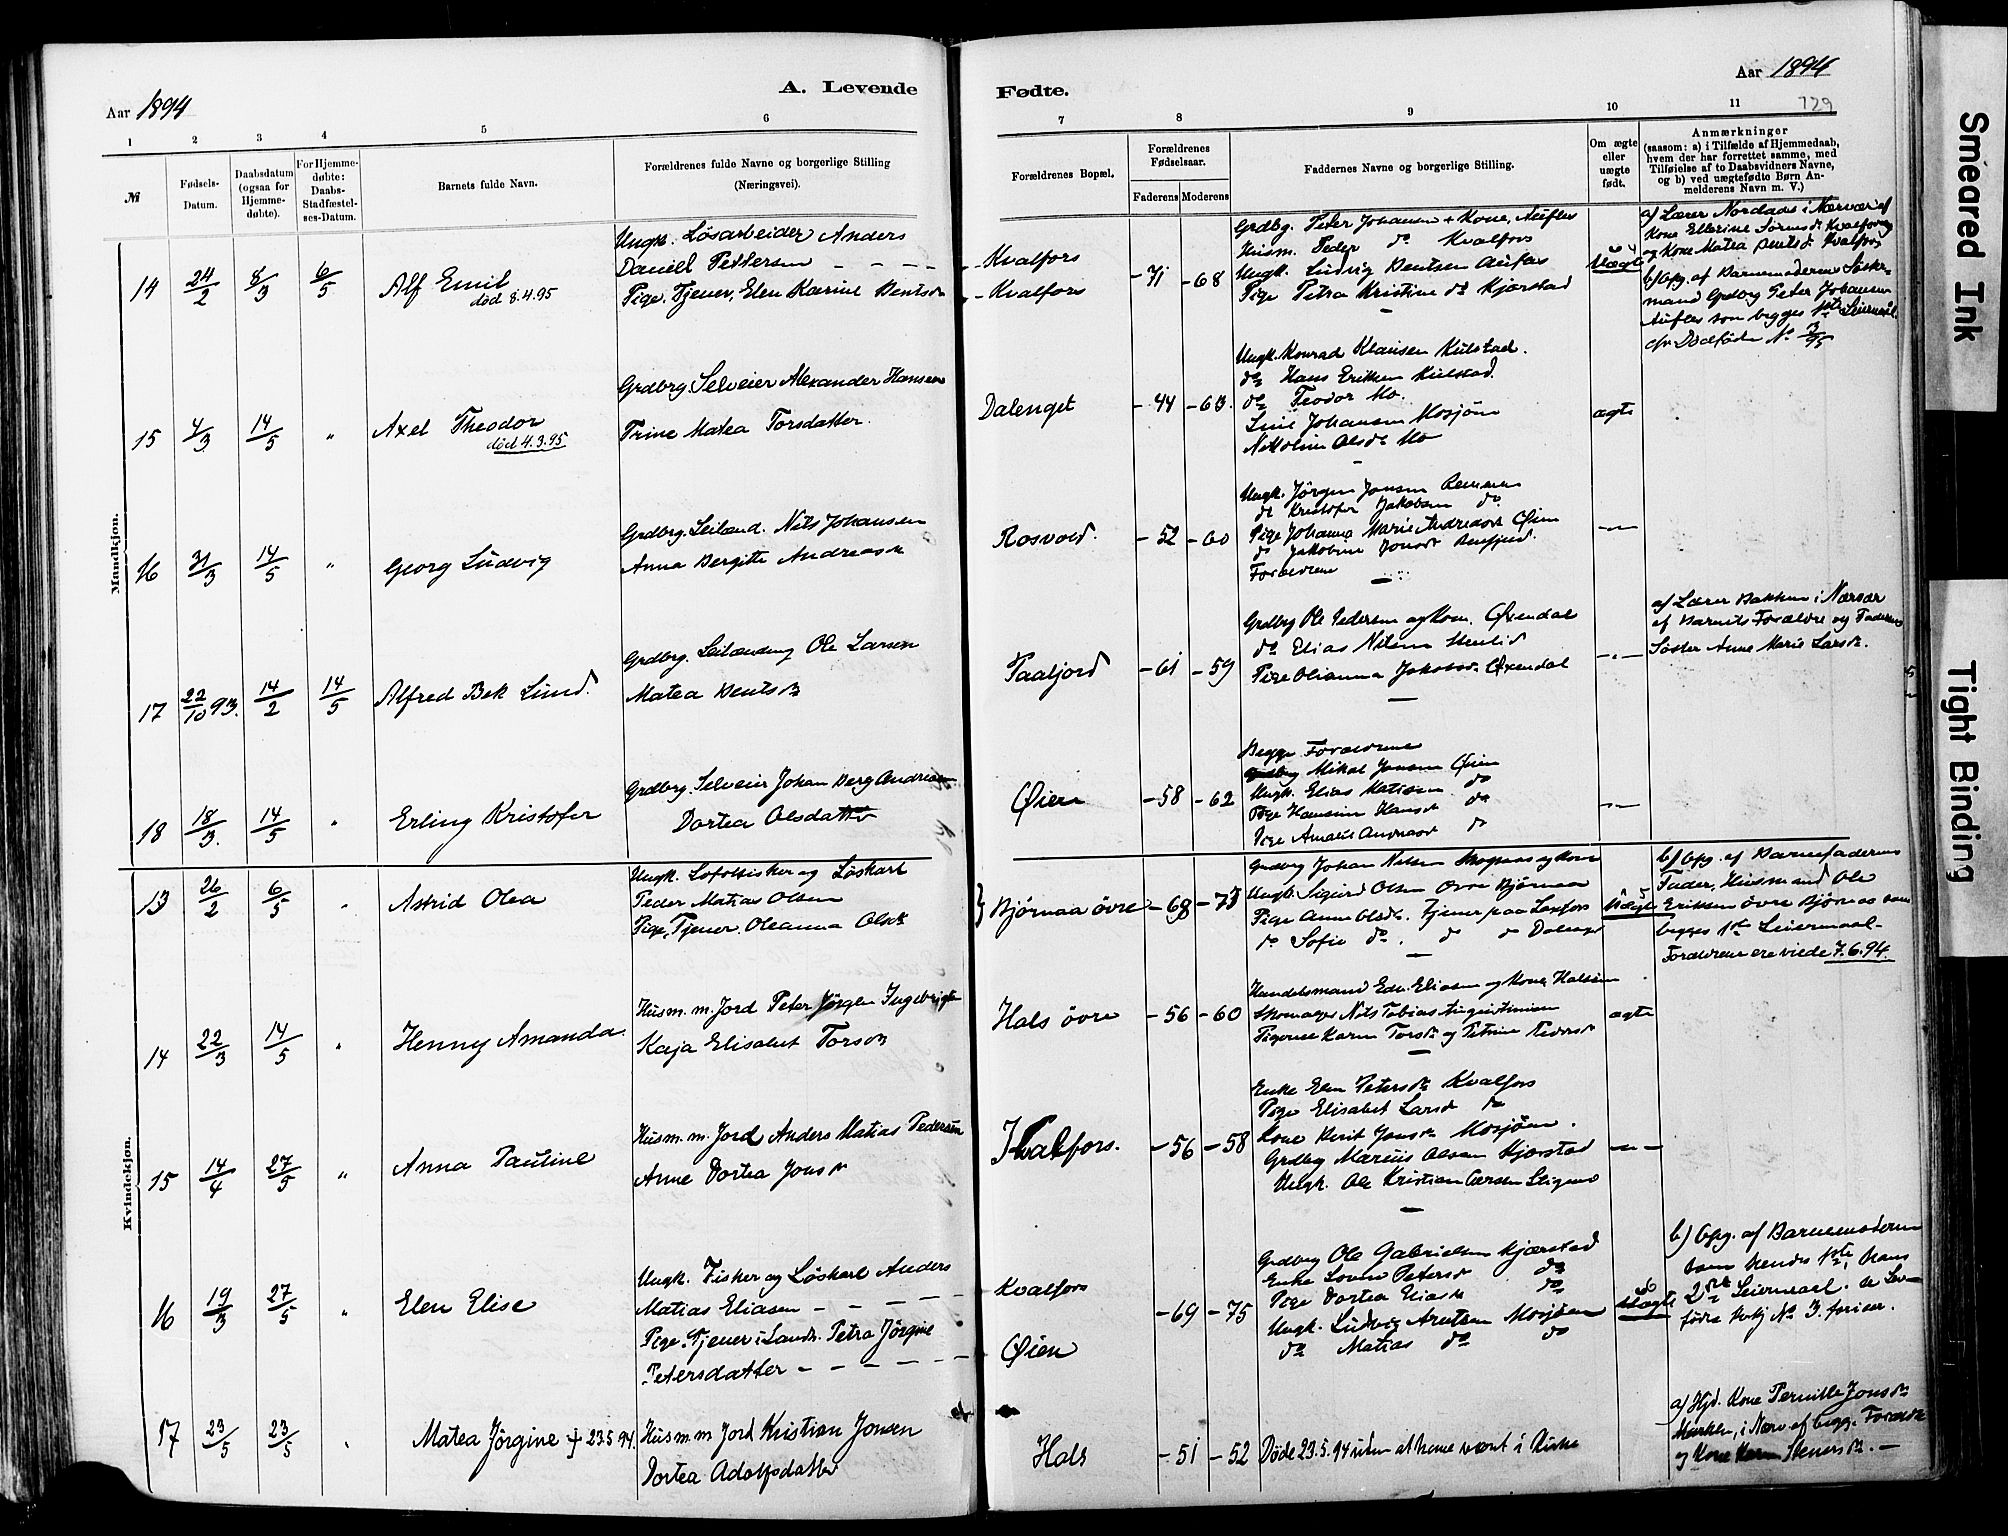 Aar 1894
A. Levende
Fødte.
Aar 1894
129
1 2 3 4 5 6 7 8 9 10 11
№
Fødsels-Datum.
Daabsdatum (ogsaa for Hjemme-døbte).
For Hjemme-døbte: Daabs-Stadfæstel-ses-Datum.
Barnets fulde Navn.
Forældrenes fulde Navne og borgerlige Stilling (Næringsvei).
Forældrenes Bopæl.
Forældrenes Fødselsaar.
Faderens Moderens
Faddernes Navne og borgerlige Stilling.
Om ægte eller uægte født.
Anmærkninger
(saasom: a) i Tilfælde af Hjemmedaab,
hvem der har forrettet samme, med
Tilføielse af to Daabsvidners Navne,
og b) ved uægtefødte Børn An-
melderens Navn m. V.)
Mandkjøn.
14 24/2 8/3 6/5 Alf Emil
død 8.4.95
Ungk. Løsarbeider Anders
Daniel Pettersen
Pige, Tjener, Elen Karine Bentsdr
Kvalfors
Kvalfors
-71 -68
Grdbg. Peter Johansen + Kone, Aufles
Husm. Peder do Kvalfors
Ungk. Ludvig Bentsen Aufles
Pige Petra Kristine do Kjærstad
Uægte
a) Lærer Nordaas i Nærvær af
Kone Ellerine Sørensdr Kvalfors og
Kone Matea Bentsdr Kvalfors
b) Opg. af Barnemoderens Søster-
mand Grdbg Peter Johansen
Aufles som begges 1ste Leiermaal.
cfr Dødfødte No 3/95
15 4/3 14/5 " Axel Theodor
død 4.3.95
Grdbrg. Selveier Alexander Hansen
Trine Matea Torsdatter.
Dalenget
-44 -63.
Ungk. Konrad Klausen Kulstad.
do Hans Eriksen Kulstad.
do Teodor Mo.
Line Johansen Mosjøen
Nikoline Olsdr Mo
ægte
16 31/3 14/5 " Georg Ludvig
Grdbrg. Leiland. Nils Johansen
Anna Bergitte Andreasdr
Rosvold.
-52 -60
Ungk. Jørgen Jonsen Remmen
do Kristofer Jakobsen do
Pige Johanna Marie Andreasdr Øien
do Jakobine Jonasdr
Forældrene
17 22/10 93. 14/2 14/5 Alfred Bek Lund.
Grdbrg. Leilænding Ole Larsen
Matea Bentsdr
Taafjord
-61 -59
Grdbrg Ole Pedersen og Kone, Øxendal
do Elias Nilsen Stenlid
Pige Olianna Jakobsdr Øxendal
a) Lærer Bakken i Nærvær
af Barnets Forældre og Faderens
Søster Anne Marie Larsdr.
18 18/3. 14/5 " Erling Kristofer
Grdbrg. Selveier Johan Berg Andreasen
Dortea Olsdatter
Øien
-58 -62
Begge Forældrene
Grdbrg Mikal Jonsen Øien
Ungk. Elias Matisen do
Pige Hansine Hansdr do
Pige Amalie Andreasdr do
Kvindekjøn.
13 26/2 6/5 " Astrid Olea
Ungk. Lofotfisker og Løskarl
Peder Matias Olsen
Pige, Tjener. Oleanna Olsdr
Bjørnaa øvre
-68 -73
Grdbrg Johan Nilsen Skogsaas og Kone
Ungk. Sigurd Olsen Øvre Bjørnaa
Pige Anne Olsdr. Tjener paa Laxfors
do Sofie do. do do Dalenget
Uægte
b) Opg. af Barnefaderens
Fader, Husmand Ole
Eriksen øvre Bjørnaa som
begges 1ste Leiermaal-
Forældrene ere viede 7.6.94.
14 22/3 14/5 " Henny Amanda
Husm. m. Jord Peter Jørgen Ingebrigtsen
Kaja Elisabet Torsdr
Hals øvre
-56 -60
Handelsmand Edv. Eliasen og Kone, Halsen
Skomager Nils Tobias Augustinusen
Pigerne Karen Torsdr og Petrine Pedersdr
ægte
15 14/4 27/5 " Anna Pauline
Husm. m. Jord Anders Matias Pedersen
Anne Dortea Jonsdr
Kvalfors.
-56 -58
Enke Elen Petersdr Kvalfors
Pige Elisabet Larsdr do
Kone Berit Jonsdr Mosjøen.
Grdbg Marius Olsen Kjærstad
Ungk. Ole Kristian Larsen
16 19/3 27/5 " Elen Elise
Ungk. Fisker og Løskarl Anders
Matias Eliasen
Pige, Tjener i Landr. Petra Jørgine
Petersdatter
Kvalfors
Øien
-69 -75
Grdbrg Ole Gabrielsen Kjærstad
Enke Lovise Petersdr do
Pige Dortea Eliasdr do
Ungk. Ludvig Arntsen Mosjøen
do Matias do do
Uægte
b) Opg. af Barnemoderen
som hendes 1ste, hans
2det Leiermaal. se Lev-
fødte Kvkj No 3 forr.
17 23/5 23/5 " Matea Jørgine + 23.5 94.
Husm. m Jord Kristian Jonsen
Dortea Adolfsdatter
Hals
-51 -52
Døde 23.5.94 uden at have været i Kirke
a) Hjd. Kone Pernille Jonsdr
Marken, i Nærv. af begg. Forældre
og Kone Karen Stensdr. —
Smeared Ink
Tight Binding